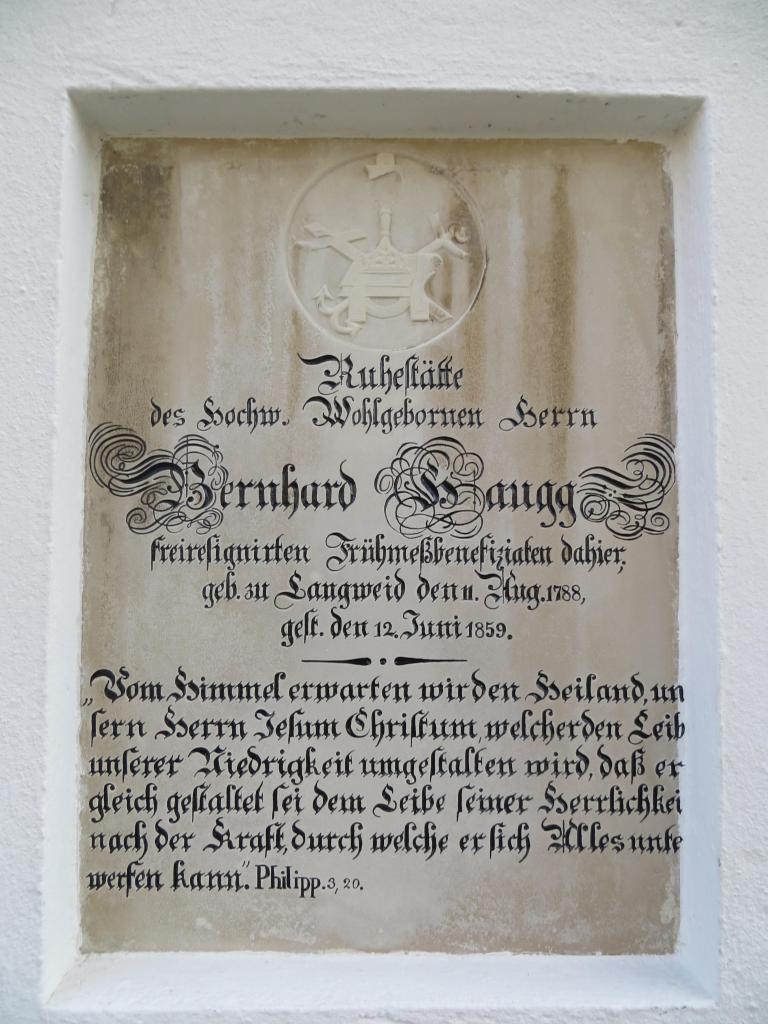 Ruhestätte
des Hochw. Wohlgebornen Herrn
Bernhard Haugg
freiresignirten Frühmeßbenefiziaten dahier,
geb. zu Langweid den 11. Aug. 1788,
gest. den 12. Juni 1859.
„Vom Himmel erwarten wir den Heiland, un
sern Herrn Jesum Christum, welcher den Leib
unserer Niedrigkeit umgestalten wird, daß er
gleich gestaltet sei dem Leibe seiner Herrlichkei
nach der Kraft, durch welche er sich Alles unte
werfen kann." Philipp. 3, 20.